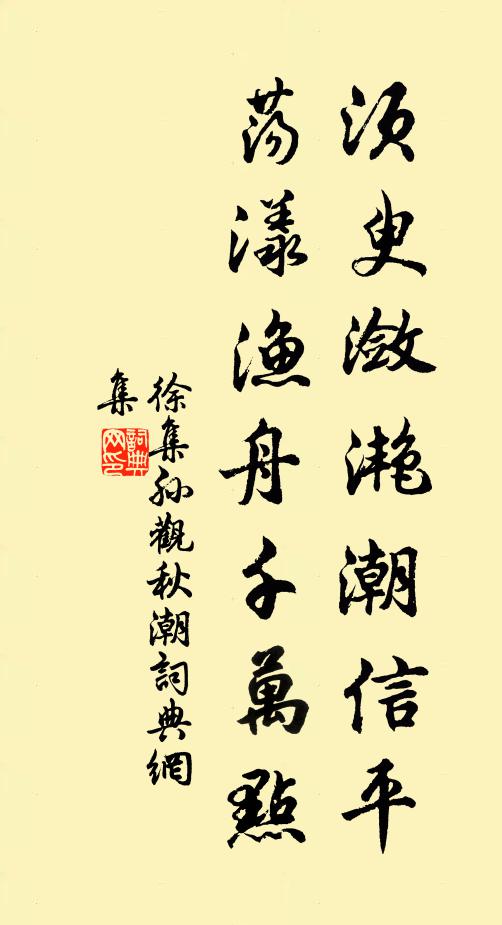 須臾瀲灔潮信平
蕩漾漁舟千萬點
徐集孫觀秋潮詞典網
集
詞典網印